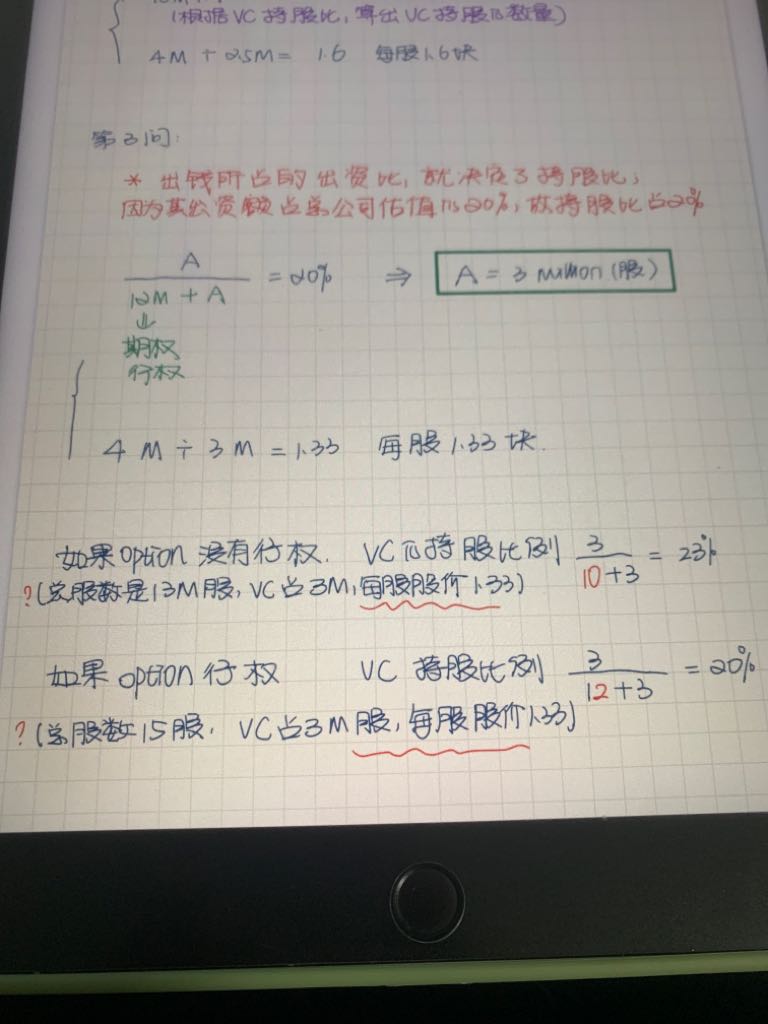 (根据VC持股比,算出VC持股的数量)
4M ÷ 2.5M = 1.6 每股1.6块
第3问:
* 出钱所占的出资比,就决定了持股比,
因为其出资额占总公司估值的20%,故持股比占20%
A
12M + A
= 20% ⇒ A = 3 million (股)
↓
期权
行权
4 M ÷ 3 M = 1.33 每股1.33块.
如果option没有行权. VC的持股比例 3/(10+3) = 23%
?(总股数是13M股,VC占3M,每股股价1.33)
如果option行权 VC持股比例 3/(12+3) = 20%
?(总股数15股, VC占3M股,每股股价1.33)